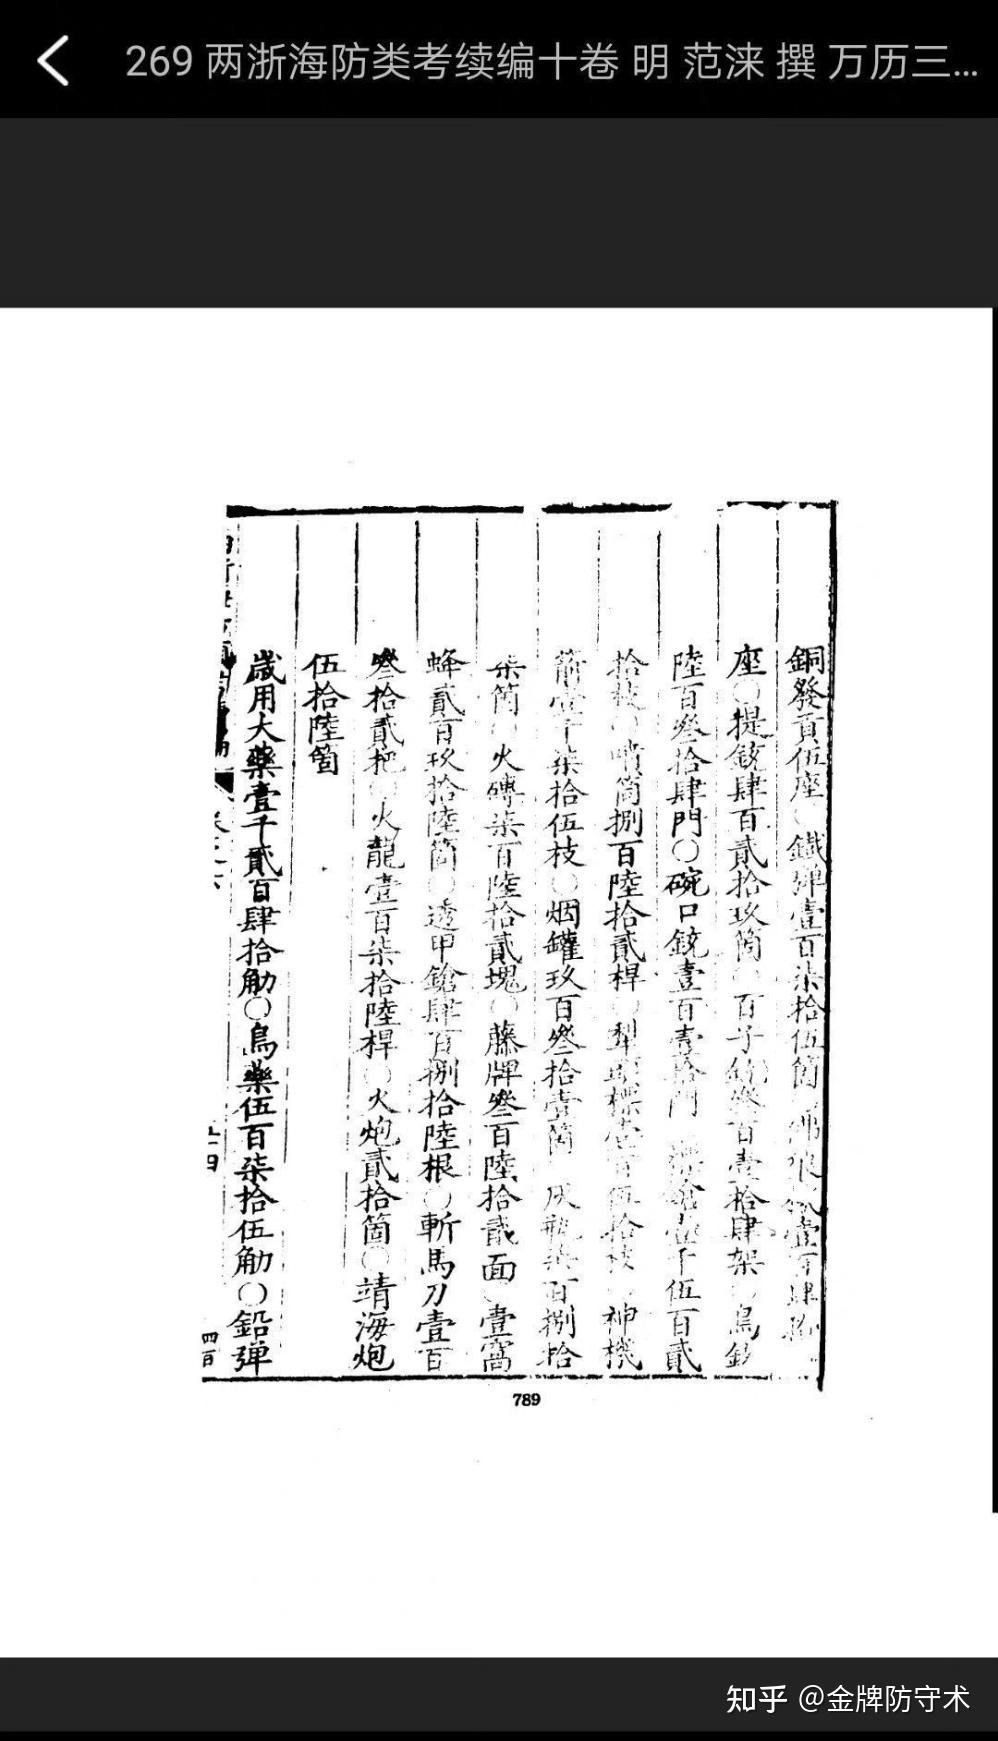 269 两浙海防类考续编十卷 明 范涞 撰 万历三...
銅發貢伍座○鐵彈壹百柒拾伍箇
座○提銃肆百貳拾玖箇○百子銃叄百壹拾肆架○鳥銃
陸百叄拾肆門○碗口銃壹百壹拾門 壹千伍百貳
拾枝○噴筒捌百陸拾貳桿○犁頭標壹百伍拾枝○神機
箭壹千柒拾伍枝○烟罐玖百叄拾壹箇 灰瓶柒百捌拾
柒箇○火磚柒百陸拾貳塊○藤牌叄百陸拾貳面○壹窩
蜂貳百玖拾陸筒○透甲鎗肆百捌拾陸根○斬馬刀壹百
叄拾貳把○火龍壹百柒拾陸桿○火炮貳拾箇○靖海炮
伍拾陸箇
歲用大藥壹千貳百肆拾觔○鳥藥伍百柒拾伍觔○鉛彈
789
知乎 @金牌防守术